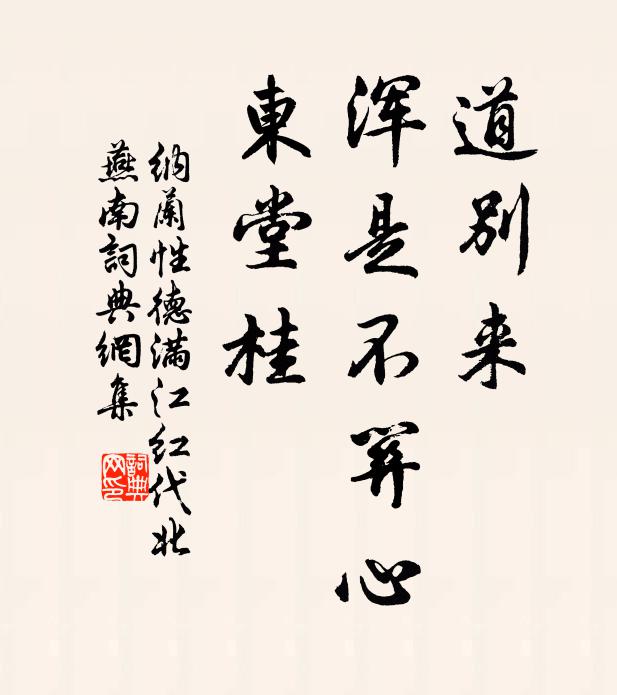 道別来
浑是不关心
東堂桂
納蘭性德满江红代北
燕南詞典網集
詞典网印